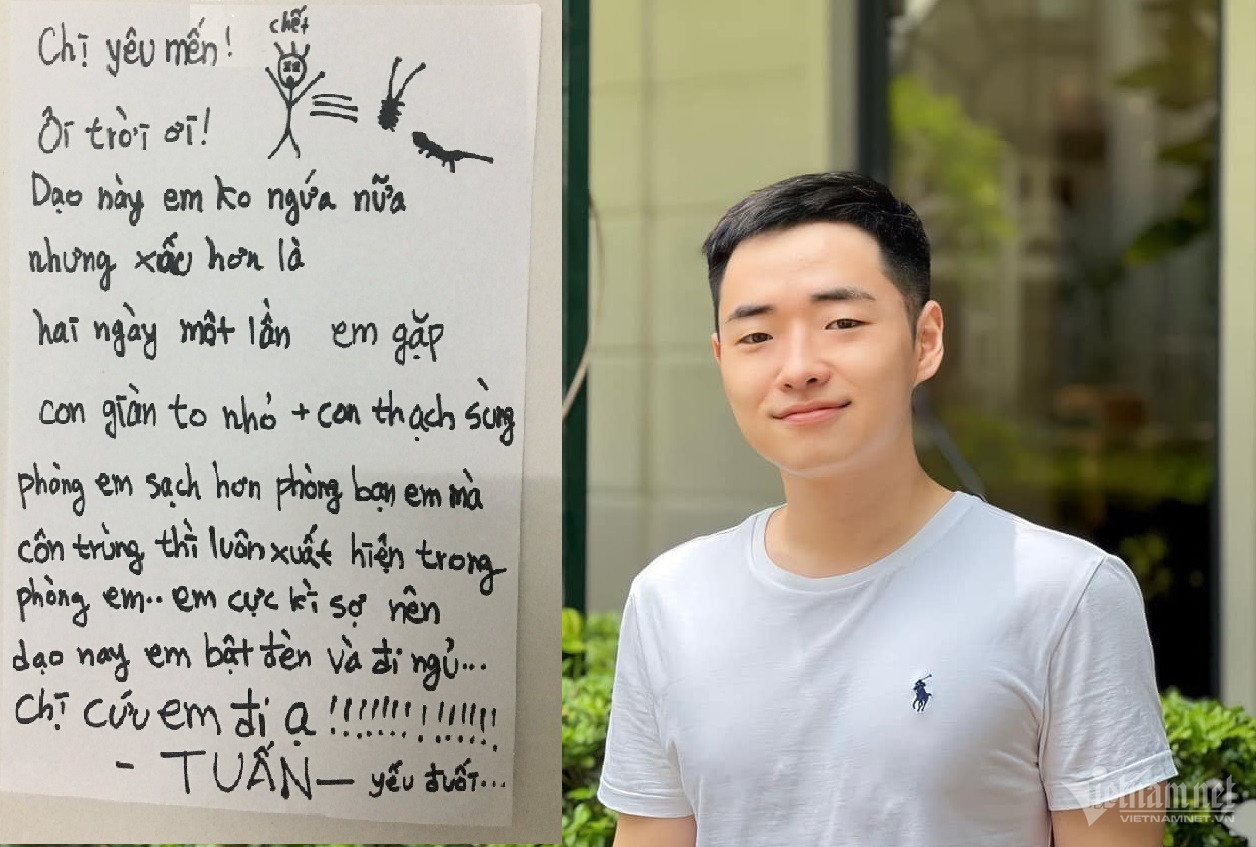 chết
Chị yêu mến!
Ôi trời ơi!
Dạo này em ko ngứa nữa
nhưng xấu hơn là
hai ngày một lần em gặp
con giàn to nhỏ + con thạch sùng
phòng em sạch hơn phòng bạn em mà
côn trùng thì luôn xuất hiện trong
phòng em.. em cực kì sợ nên
dạo nay em bật đèn và đi ngủ...
Chị cứu em đi ạ !!!!!!!!!!!!!!
- TUẤN — yếu đuối...
Vietnamnet
VIETNAMNET.VN